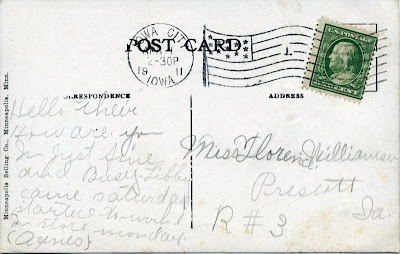 IOWA CITY
2-30P
19 11
IOWA
POST CARD
1
U.S. POSTAGE
CORRESPONDENCE
ADDRESS
Minneapolis Selling Co., Minneapolis, Minn.
Hello there
How are you
Im Just fine
and Busy
came saturday
started to work
in store monday.
(Agnes)
Miss Florence Williamson
Prescott
R #3 Ia.